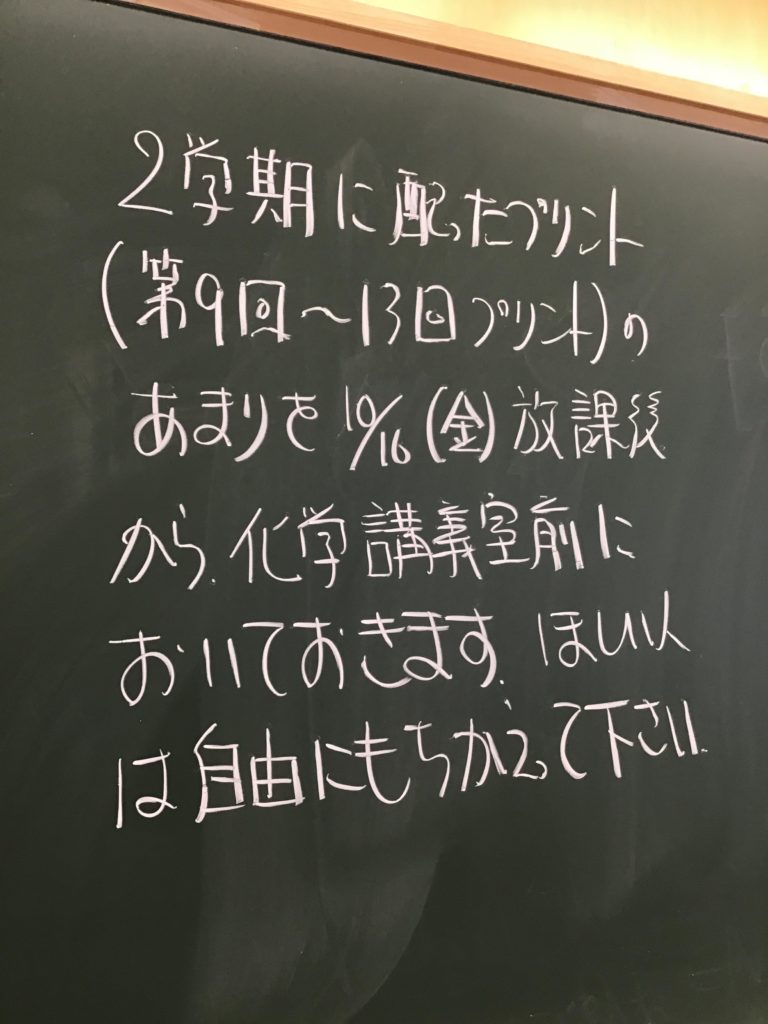 2学期に配ったプリント
(第9回～13回プリント)の
あまりを10/16(金)放課後
から、化学講義室前に
おいておきます。ほしい人
は自由にもちかえって下さい。